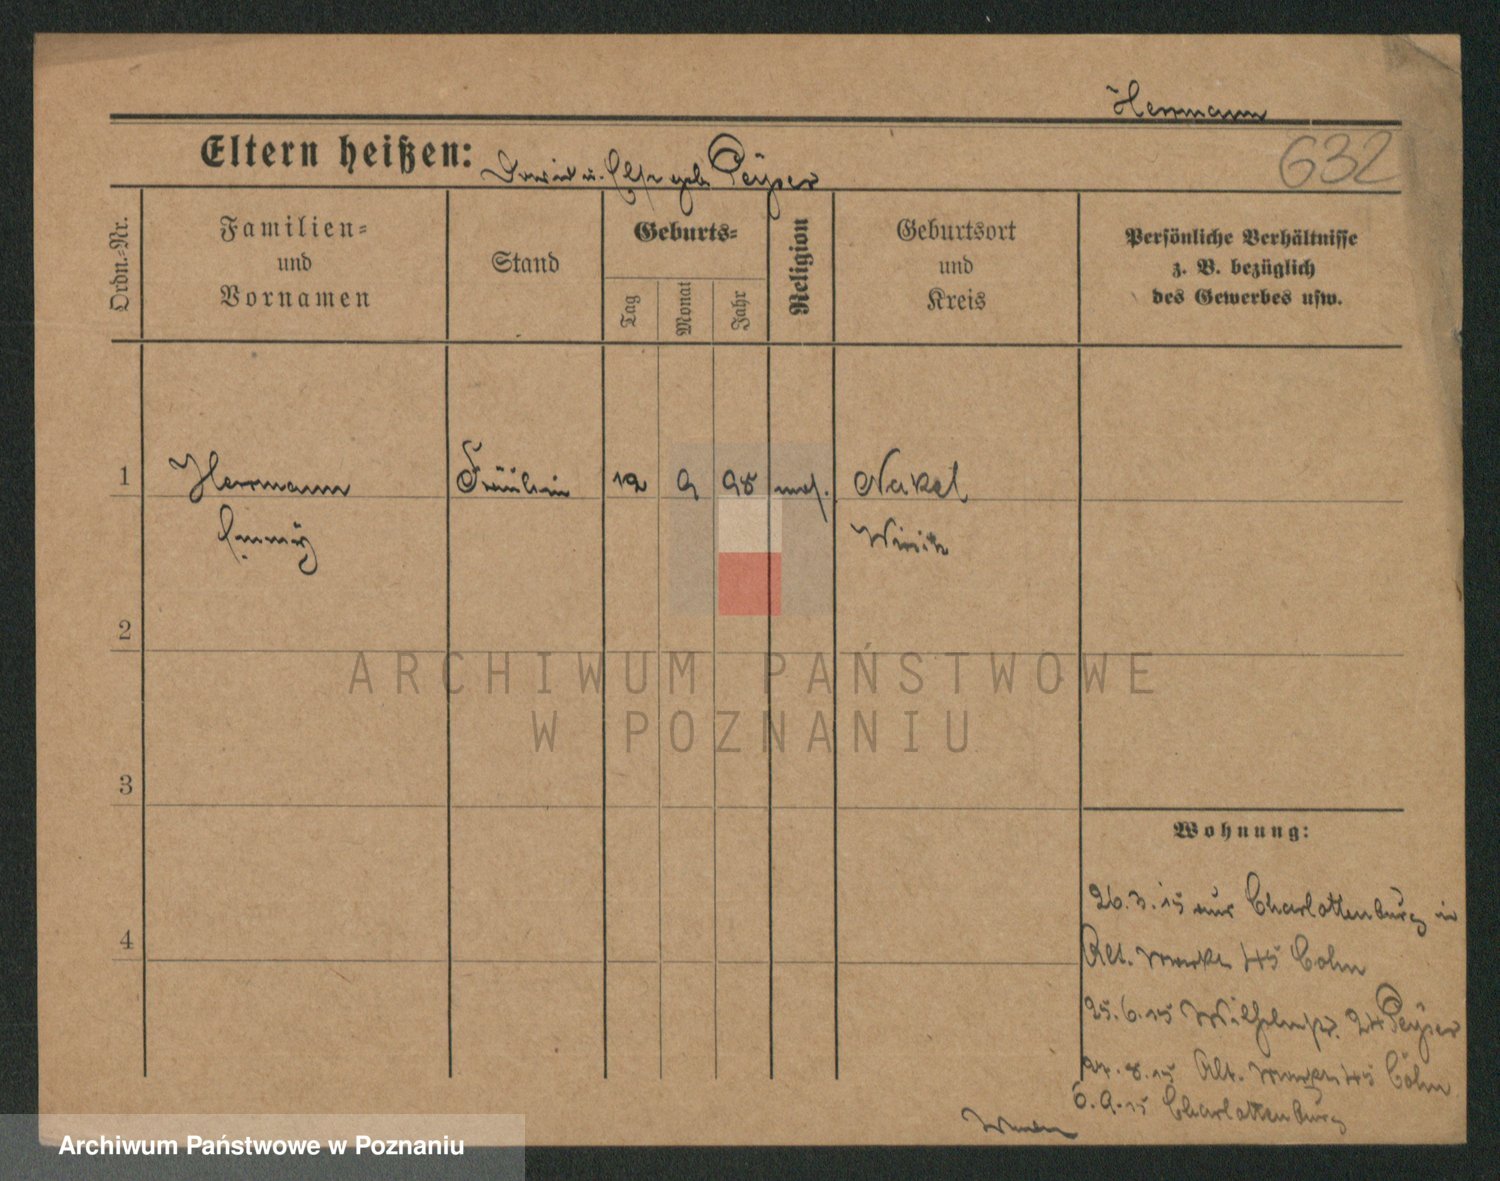 Herrmann
632
Eltern heißen: David u. Else geb. Peÿser
Ordn.-Nr.
Familien-
und
Vornamen
Stand
Geburts-
Tag
Monat
Jahr
Religion
Geburtsort
und
Kreis
Persönliche Verhältnisse
z. B. bezüglich
des Gewerbes usw.
1 Herrmann Fräulein 12 9 98 mos. Nakel
Emmÿ Wirsitz
2
3
4
Wohnung:
26.3.15 aus Charlottenburg in
Alt. Markt 45 Cohn
25.6.15 Wilhelmpl. 24 Peÿser
27.8.15 Alt. Markt 45 Cohn
6.9.15 Charlottenburg
ARCHIWUM PAŃSTWOWE
W POZNANIU
Archiwum Państwowe w Poznaniu